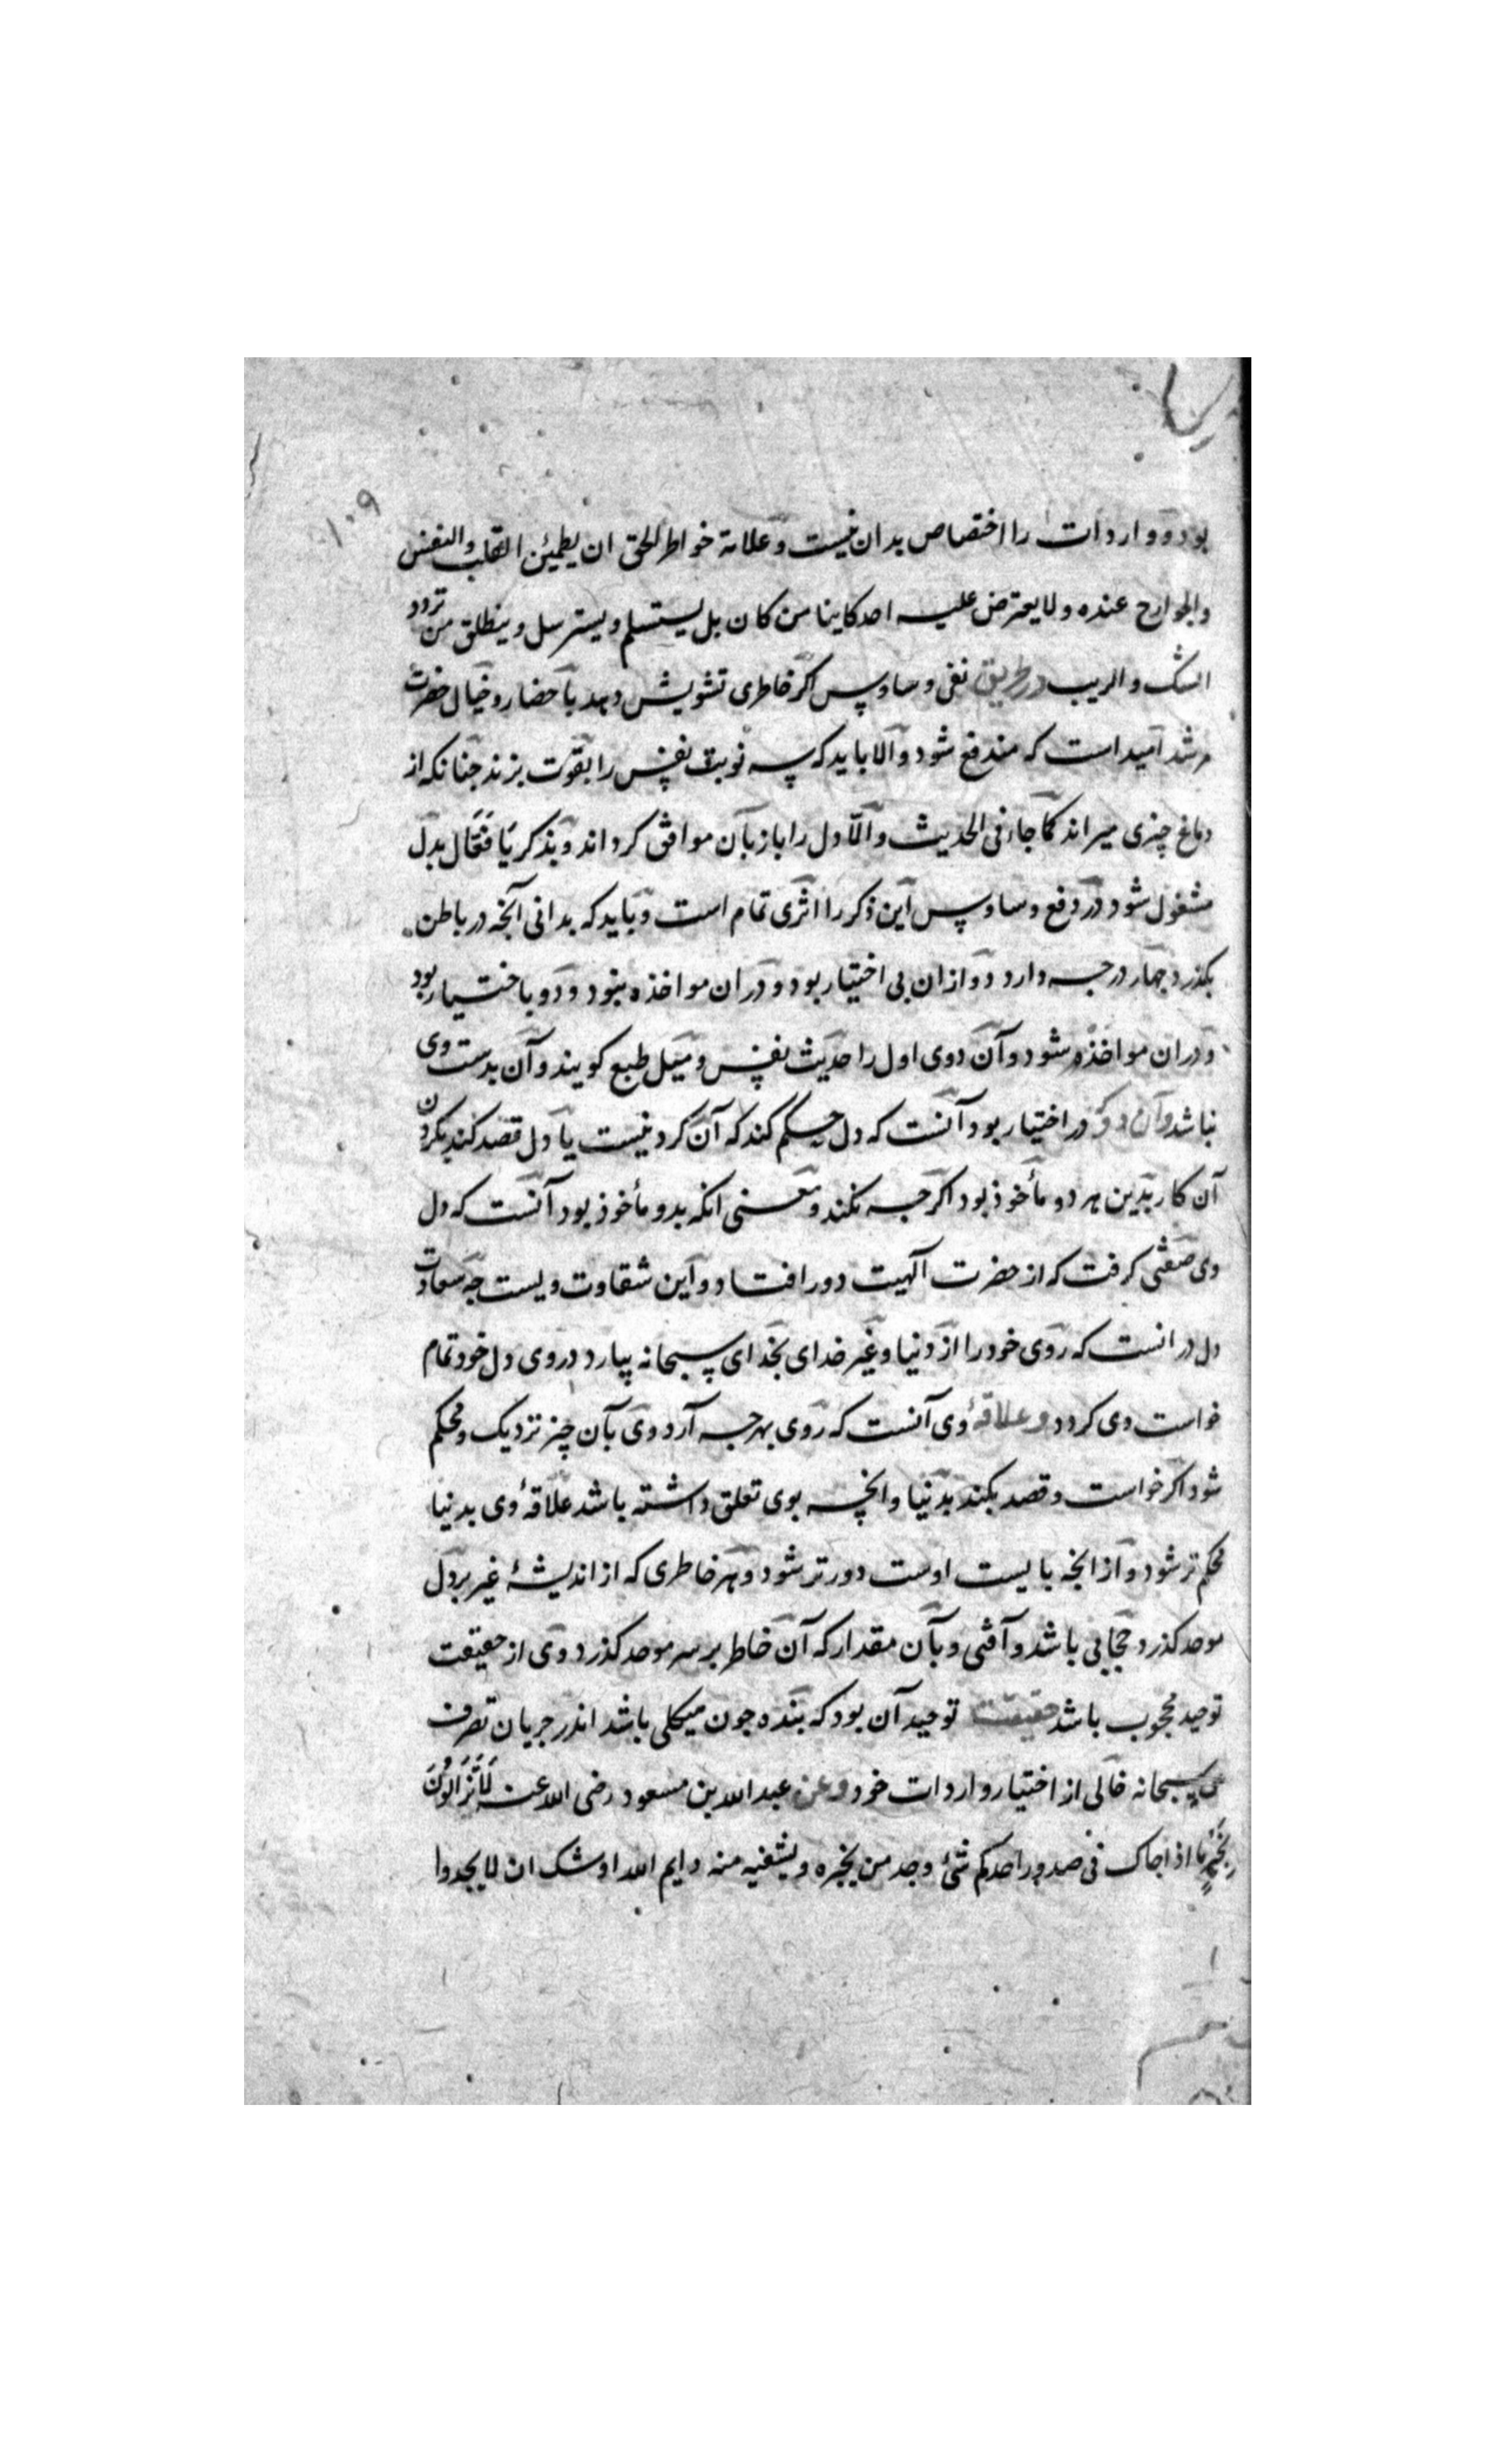 ۱۰۹
بود و واردات را اختصاص بدان نیست و علامة خواطر الحق ان یطمئن القلب والنفس
والجوارح عنده ولا یعترض علیه احد کاینا من کان بل یستسلم و یسترسل و ینطلق من تردد
الشک والریب در طریق نفی وساوس اگر خاطری تشویش دهد باحضار و خیال حضرت
مرشد امید است که مندفع شود والا باید که سه نوبت نفس را بقوت بزند چنانکه از
دماغ چیزی میراند کما جاء فی الحدیث والّا دل را با زبان موافق کرداند و بذکر یَا فَعَّال بدل
مشغول شود در دفع وساوس این ذکر را اثری تمام است و باید که بدانی آنچه در باطن
بکذرد چهار درجه دارد دو ازان بی اختیار بود و دران مواخذه نبود و دو باختیار بود
و دران مواخذه شود و آن دوی اول را حدیث نفس و میل طبع کویند و آن بدست وی
نباشد و آن دو که در اختیار بود آنست که دل حکم کند که آن کردنیست یا دل قصد کند بکردن
آن کار بدین هر دو مأخوذ بود اکرچه نکند و معنی انکه بدو مأخوذ بود آنست که دل
وی صفتی کرفت که از حضرت آلهیت دور افتاد و این شقاوت ویست چه سعادت
دل در انست که روی خود را از دنیا و غیر خدای بخدای سبحانه بیارد و روی دل خود تمام
خواست وی کردد و علاقهٔ وی آنست که روی بهرچه آرد وی بآن چیز نزدیک و محکم
شود اکر خواست و قصد بکند بدنیا و انچه بوی تعلق داشته باشد علاقهٔ وی بدنیا
محکم تر شود و از انچه بایست اوست دورتر شود و هر خاطری که از اندیشهٔ غیر بر دل
موحد کذرد حجابی باشد و آفتی و بآن مقدار که آن خاطر بر سر موحد کذرد وی از حقیقت
توحید محجوب باشد حقیقت توحید آن بود که بنده چون هیکلی باشد اندر جریان تصرف
حق سبحانه خالی از اختیار و ارادات خود و عن عبد الله بن مسعود رضی الله عنه لَاتَزَالُونَ
بِخَیْرٍ مَا اذا حاک فی صدور احدکم شئ وجد من یخبره و یشفیه منه وایم الله اوشک ان لا یجدوا